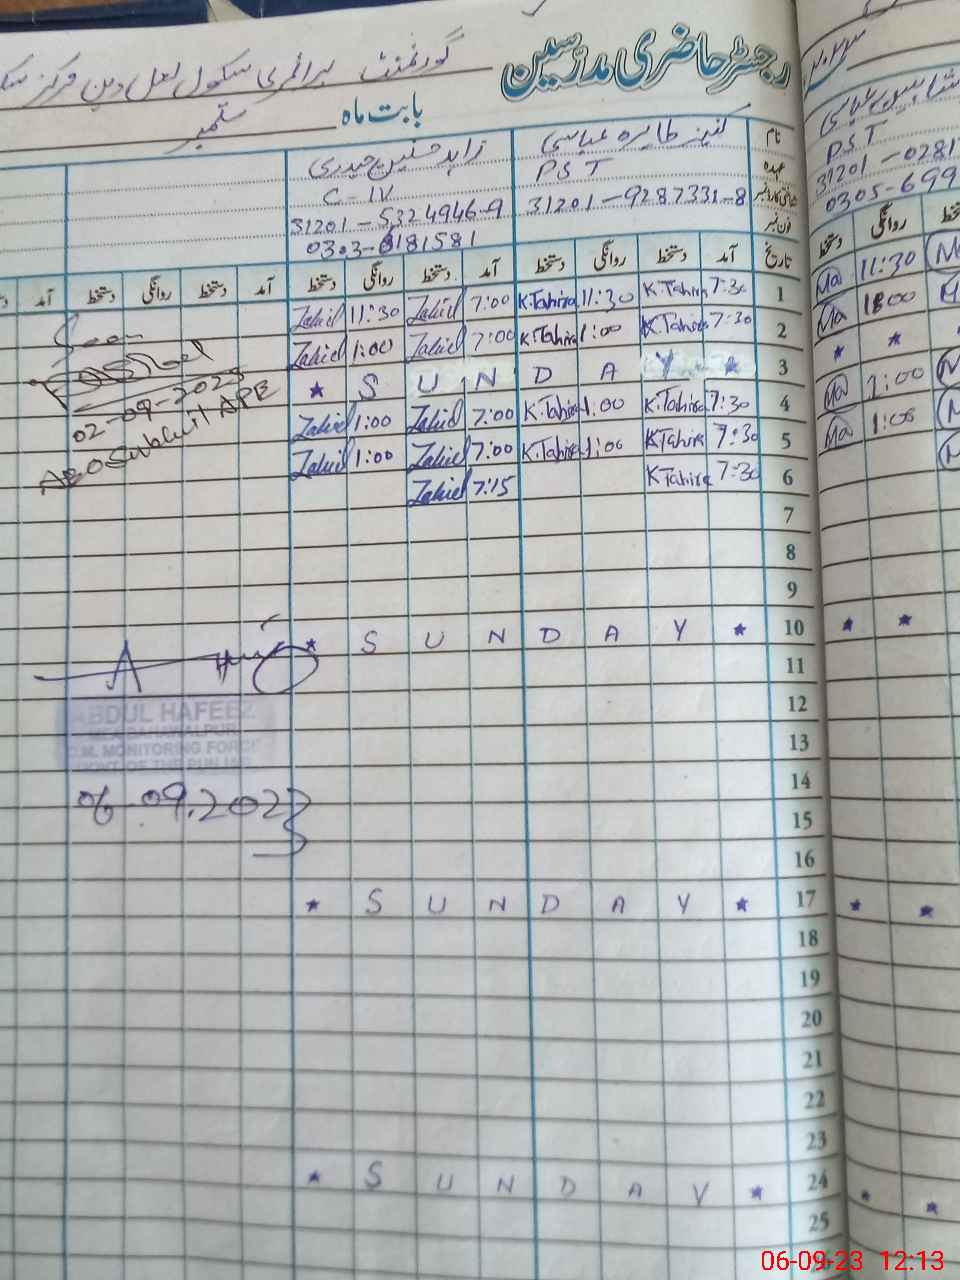 رجسٹر حاضری مدرسین
گورنمنٹ پرائمری سکول لعل دین مرکز
بابت ماہ ستمبر
نام کنیز طاہرہ عباسی زاہد حسنین حیدری
عہدہ PST C-IV
شناختی کارڈ نمبر 31201-9287331-8 31201-5324946-9
فون نمبر 0303-6181581
تاریخ آمد دستخط روانگی دستخط آمد دستخط روانگی دستخط آمد دستخط روانگی دستخط آمد
1 7:30 K.Tahira 11:30 K.Tahira 7:00 Zahid 11:30 Zahid
2 7:30 K.Tahira 1:00 K.Tahira 7:00 Zahid 1:00 Zahid
3 * S U N D A Y *
4 7:30 K.Tahira 1:00 K.Tahira 7:00 Zahid 1:00 Zahid
5 7:30 K.Tahira 1:00 K.Tahira 7:00 Zahid 1:00 Zahid
6 7:30 K.Tahira 7:15 Zahid
7
8
9
10 * S U N D A Y *
11
12
13
14
15
16
17 * S U N D A Y *
18
19
20
21
22
23
24 * S U N D A Y *
25
Seen
02-09-2023
ABDUL HAFEEZ
MEA BAHAWALPUR
C.M. MONITORING FORCE
GOVT OF THE PUNJAB
06.09.2023
PST
31201-0281
0305-699
روانگی دستخط
Ma 11:30
Ma 1:00
* *
Ma 1:00
Ma 1:00
* *
* *
* *
06-09-23 12:13